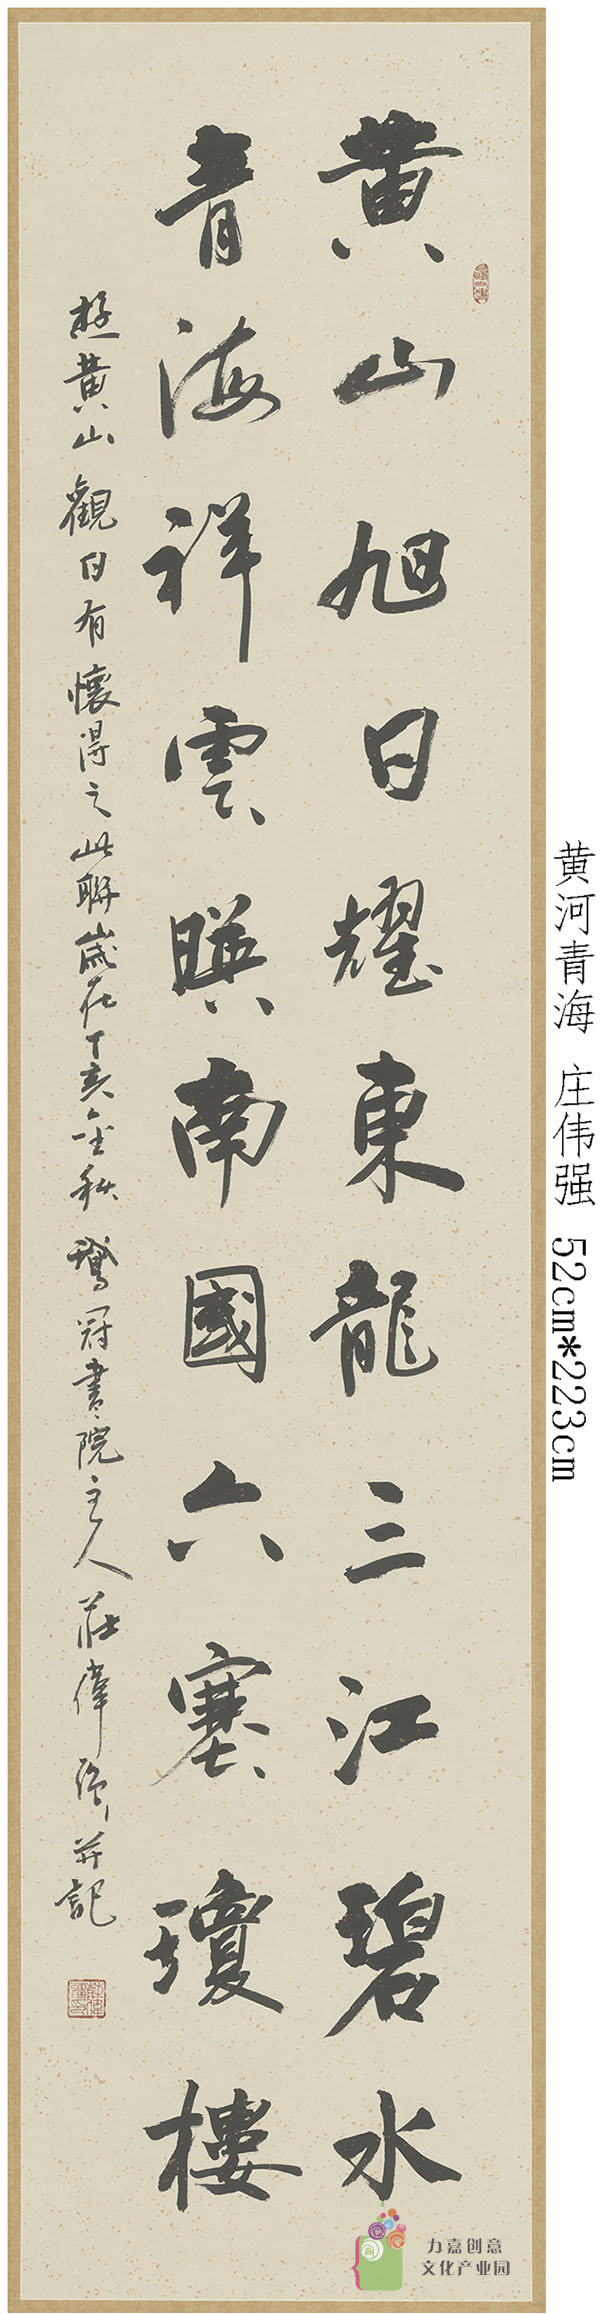 黄山旭日耀東龍三江碧水
青海祥雲暎南國六塞瓊樓
遊黄山觀日有懷得之此聯歲在丁亥金秋鵞冠書院主人莊偉强并記
黄河青海 庄伟强 52cm*223cm
力嘉创意
文化产业园